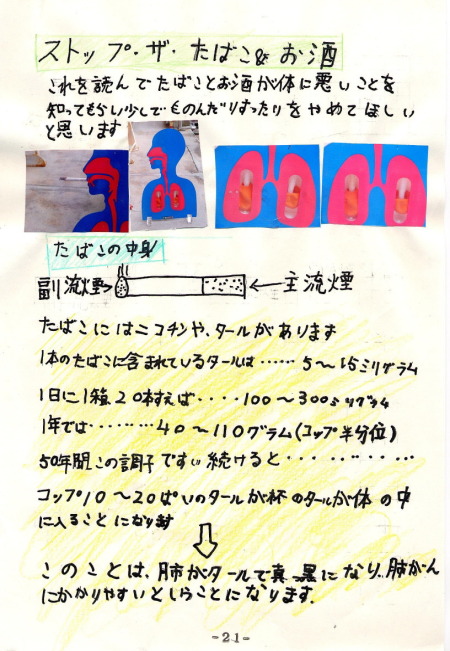 ストップ・ザ・たばこ&お酒
これを読んでたばことお酒が体に悪いことを
知ってもらい少しでものんだりすったりをやめてほしい
と思います
たばこの中身
副流煙→ ←主流煙
たばこにはニコチンや、タールがあります
1本のたばこに含まれているタールは……5〜15ミリグラム
1日に1箱、20本すえば‥‥100〜300ミリグラム
1年では………40〜110グラム(コップ半分位)
50年間この調子ですい続けると‥‥‥‥‥‥
コップ10〜20ぱいのタールが杯のタールが体の中
に入ることになります
このことは、肺がタールで真っ黒になり、肺がん
にかかりやすいということになります。
-21-